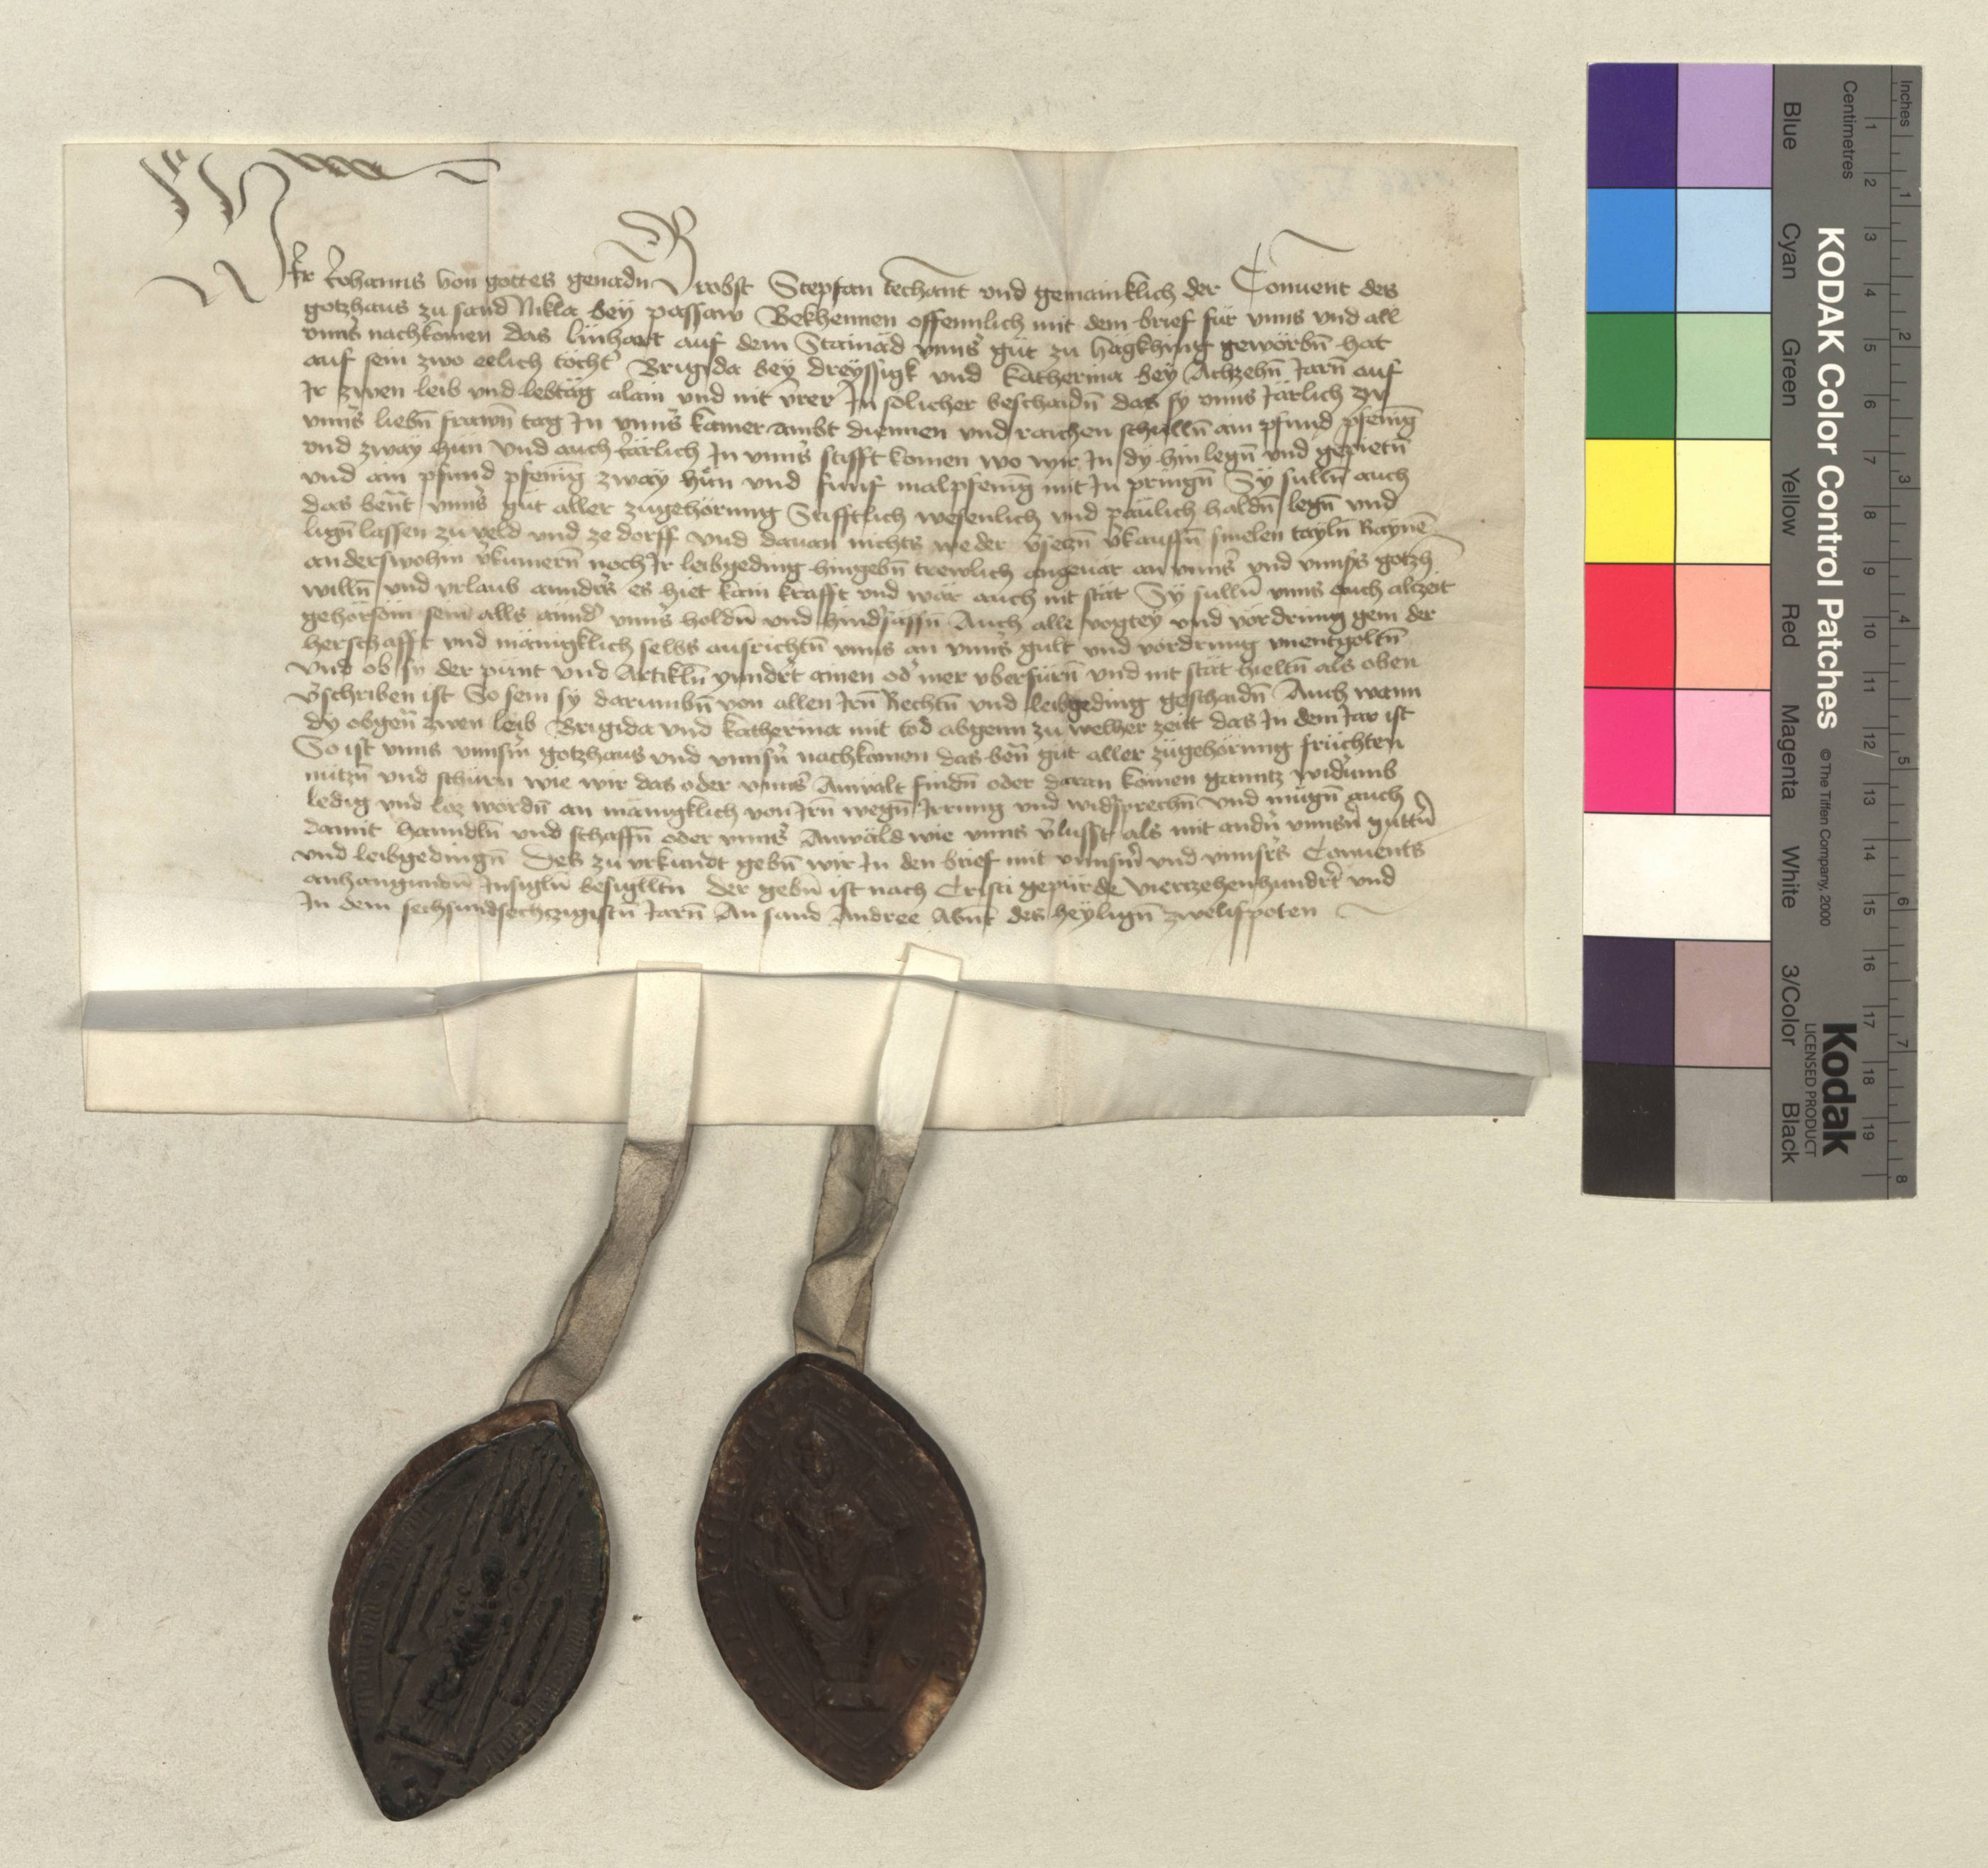 Wir Johanns von gottes genadn Brobst Stepfan techant und gemainklich der Conuent des
gotzhaus zu sand Nikla bey passaw Bekhennen offennlich mit dem brief für vnns vnd all
vnns̉ nachkomen das linhart auf dem Stainäd vnns̉ güt zu hägkhing gewörbn̄ hat
auf sein zwo eelich töcht̉ Brigida bey dreyssigk vnd Katherina bey Achzehn̄ Jarn̄ auf
Jr zwen leib vnd lebtäg alain vnd nit vrer Jn solicher beschaidn̄ das sy vnns Järlich zu
vnns̉ liebn̄ frawn̄ tag Jn vnns̉ kamer ambt diennen vnd raichen schulln̄ ain pfund pfenīg
vnd zway hün vnd auch Järlich Jn vnns̉ stifft komen wo wir Jn dy hin legn̄ vnd gepietn̄
vnd ain pfund pfenīg zway hün vnd fünf malpfenīg mit Jn pringn̄ Sy sulln̄ auch
das ben̄t vnns̉ güt aller zugehörung Stifftlich wesenlich vnd päulich haldn̄ legn̄ vnd
lign̄ lassen zu veld vnd ze dorff vnd dauan nichts weder v̉setzn̄ v̉kauffn̄ smelen tayln̄ Raynē
anderswohin v̉kumern̄ noch Jr leibgeding hingebn̄ trewlich angeuar an vnns̉ vnd vnnsr̉s gotzh
willn̄ vnd vrlaub annders̉ es hiet kain krafft vnd wär auch nit stät Sy sulln̄ vnns auch alzeit
gehörsöm sein alls annd̉ vnns̉ holdn̄ vnd hind̉sässn̄ Auch alle vogtey vnd vördrung gem der
herschafft vnd mänigklich selbs ausrichtn̄ vnns an vnns̉ gült vnd vördrung vnentgoltn̄
Vnd ob sy der pünt vnd Artikln̄ ynndr̉t ainen od̉ mer vberfürn̄ vnd nit stät hieltn̄ als oben
v̉schriben ist So sein sy darumbn̄ von allen Jrn̄ Rechtn̄ vnd leibgeding geschaidn̄ Auch wann
dy obgen̄ zwen leib Brigida vnd Katherina mit tod abgenn zu welher zeitt das Jn dem Jar ist
So ist vnns vnnsm̉ gotzhaus vnd vnnsn̉ nachkomen das ben̄ güt aller zügehörung früchten
nützn̄ vnd schürn wie wir das oder vnns̉ Anwält findn̄ oder daran kömen ganntz wid̉umb
ledig vnd loz wordn̄ an mänigklich von Jrn̄ wegn̄ Jrrung vnd wid̉sprechn̄ vnd mügn̄ auch
damit hanndln̄ vnd schaffn̄ oder vnns̉ Anwäld wie vnns v̉lusst als mit andn̉ vnnsn̉ güttn̉
vnd leibgedingn̄ Des zu vrkundt gebn̄ wir Jn den brief mit vnnsm̉ vnd vnnsr̉s Conuents
anhangundn̄ Jnsigln̄ besiglltn̄ Der gebn̄ ist nach Cristi gepürde vierzehenhundr̉t vnd
Jn dem sechsundsechzigistn̄ Jarn̄ An sand Andree Abn̄t des heylign̄ zwelifpoten
KODAK Color Control Patches © The Tiffen Company, 2000
Kodak
LICENSED PRODUCT
Inches
1 2 3 4 5 6 7 8
Centimetres
1 2 3 4 5 6 7 8 9 10 11 12 13 14 15 16 17 18 19
Blue Cyan Green Yellow Red Magenta White 3/Color Black